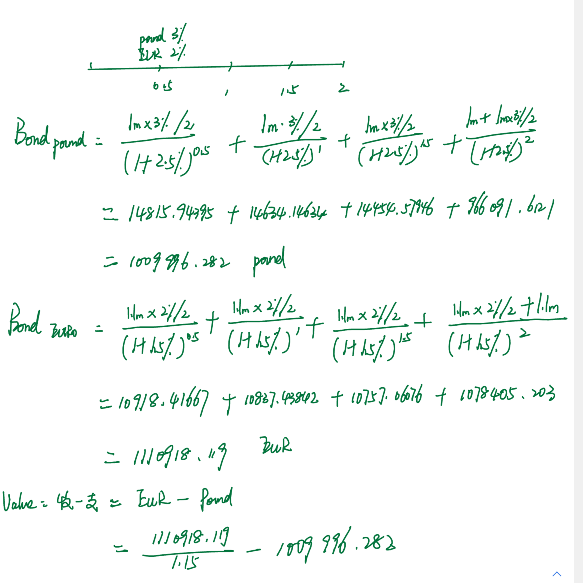 pound 3%
EUR 2%
0.5 1 1.5 2
Bond pound = \frac{1m×3%/2}{(1+2.5%)^{0.5}} + \frac{1m·3%/2}{(1+2.5%)^1} + \frac{1m×3%/2}{(1+2.5%)^{1.5}} + \frac{1m+1m×3%/2}{(1+2.5%)^2}
= 14815.94395 + 14634.14634 + 14454.57946 + 966091.6121
= 1009996.282 pound
Bond EURO = \frac{1.1m×2%/2}{(1+1.5%)^{0.5}} + \frac{1.1m×2%/2}{(1+1.5%)^1} + \frac{1.1m×2%/2}{(1+1.5%)^{1.5}} + \frac{1.1m×2%/2+1.1m}{(1+1.5%)^2}
= 10918.41667 + 10837.43842 + 10757.06076 + 1078405.203
= 1110918.119 EUR
Value = 收-支 = EUR - Pound
= \frac{1110918.119}{1.15} - 1009996.282